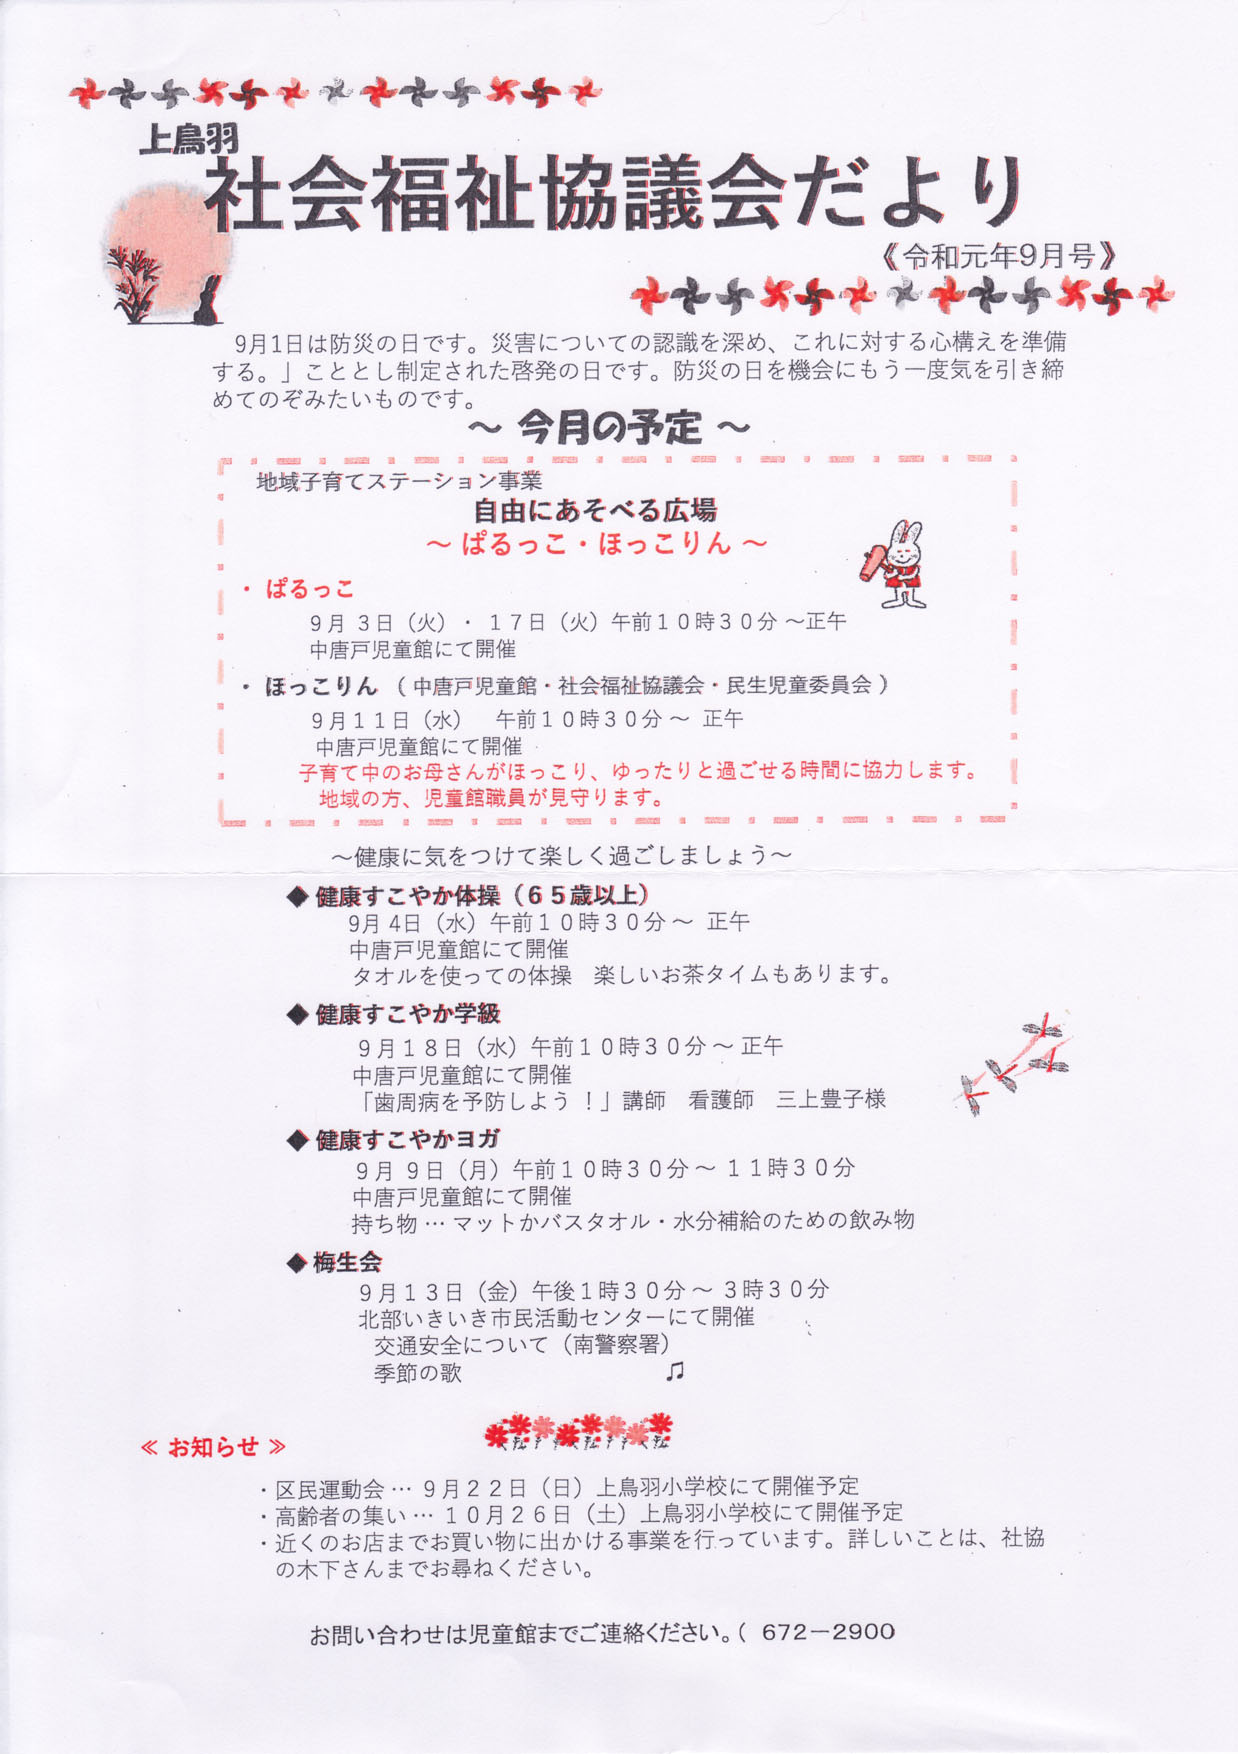 上鳥羽
社会福祉協議会だより
《令和元年9月号》
9月1日は防災の日です。災害についての認識を深め、これに対する心構えを準備
する。」こととし制定された啓発の日です。防災の日を機会にもう一度気を引き締
めてのぞみたいものです。
～ 今月の予定 ～
地域子育てステーション事業
自由にあそべる広場
～ ぱるっこ・ほっこりん ～
・ ぱるっこ
9月 3日（火）・ 17日（火）午前10時30分 ～正午
中唐戸児童館にて開催
・ ほっこりん （ 中唐戸児童館・社会福祉協議会・民生児童委員会 ）
9月11日（水）　午前10時30分～ 正午
中唐戸児童館にて開催
子育て中のお母さんがほっこり、ゆったりと過ごせる時間に協力します。
地域の方、児童館職員が見守ります。
～健康に気をつけて楽しく過ごしましょう～
◆ 健康すこやか体操（65歳以上）
9月 4日（水）午前10時30分～ 正午
中唐戸児童館にて開催
タオルを使っての体操　楽しいお茶タイムもあります。
◆ 健康すこやか学級
9月18日（水）午前10時30分～ 正午
中唐戸児童館にて開催
「歯周病を予防しよう ！」講師　看護師　三上豊子様
◆ 健康すこやかヨガ
9月 9日（月）午前10時30分～ 11時30分
中唐戸児童館にて開催
持ち物 … マットかバスタオル・水分補給のための飲み物
◆ 梅生会
9月13日（金）午後1時30分～ 3時30分
北部いきいき市民活動センターにて開催
交通安全について（南警察署）
季節の歌 ♫
≪ お知らせ ≫
・区民運動会 … 9月22日（日）上鳥羽小学校にて開催予定
・高齢者の集い … 10月26日（土）上鳥羽小学校にて開催予定
・近くのお店までお買い物に出かける事業を行っています。詳しいことは、社協
の木下さんまでお尋ねください。
お問い合わせは児童館までご連絡ください。（ 672－2900